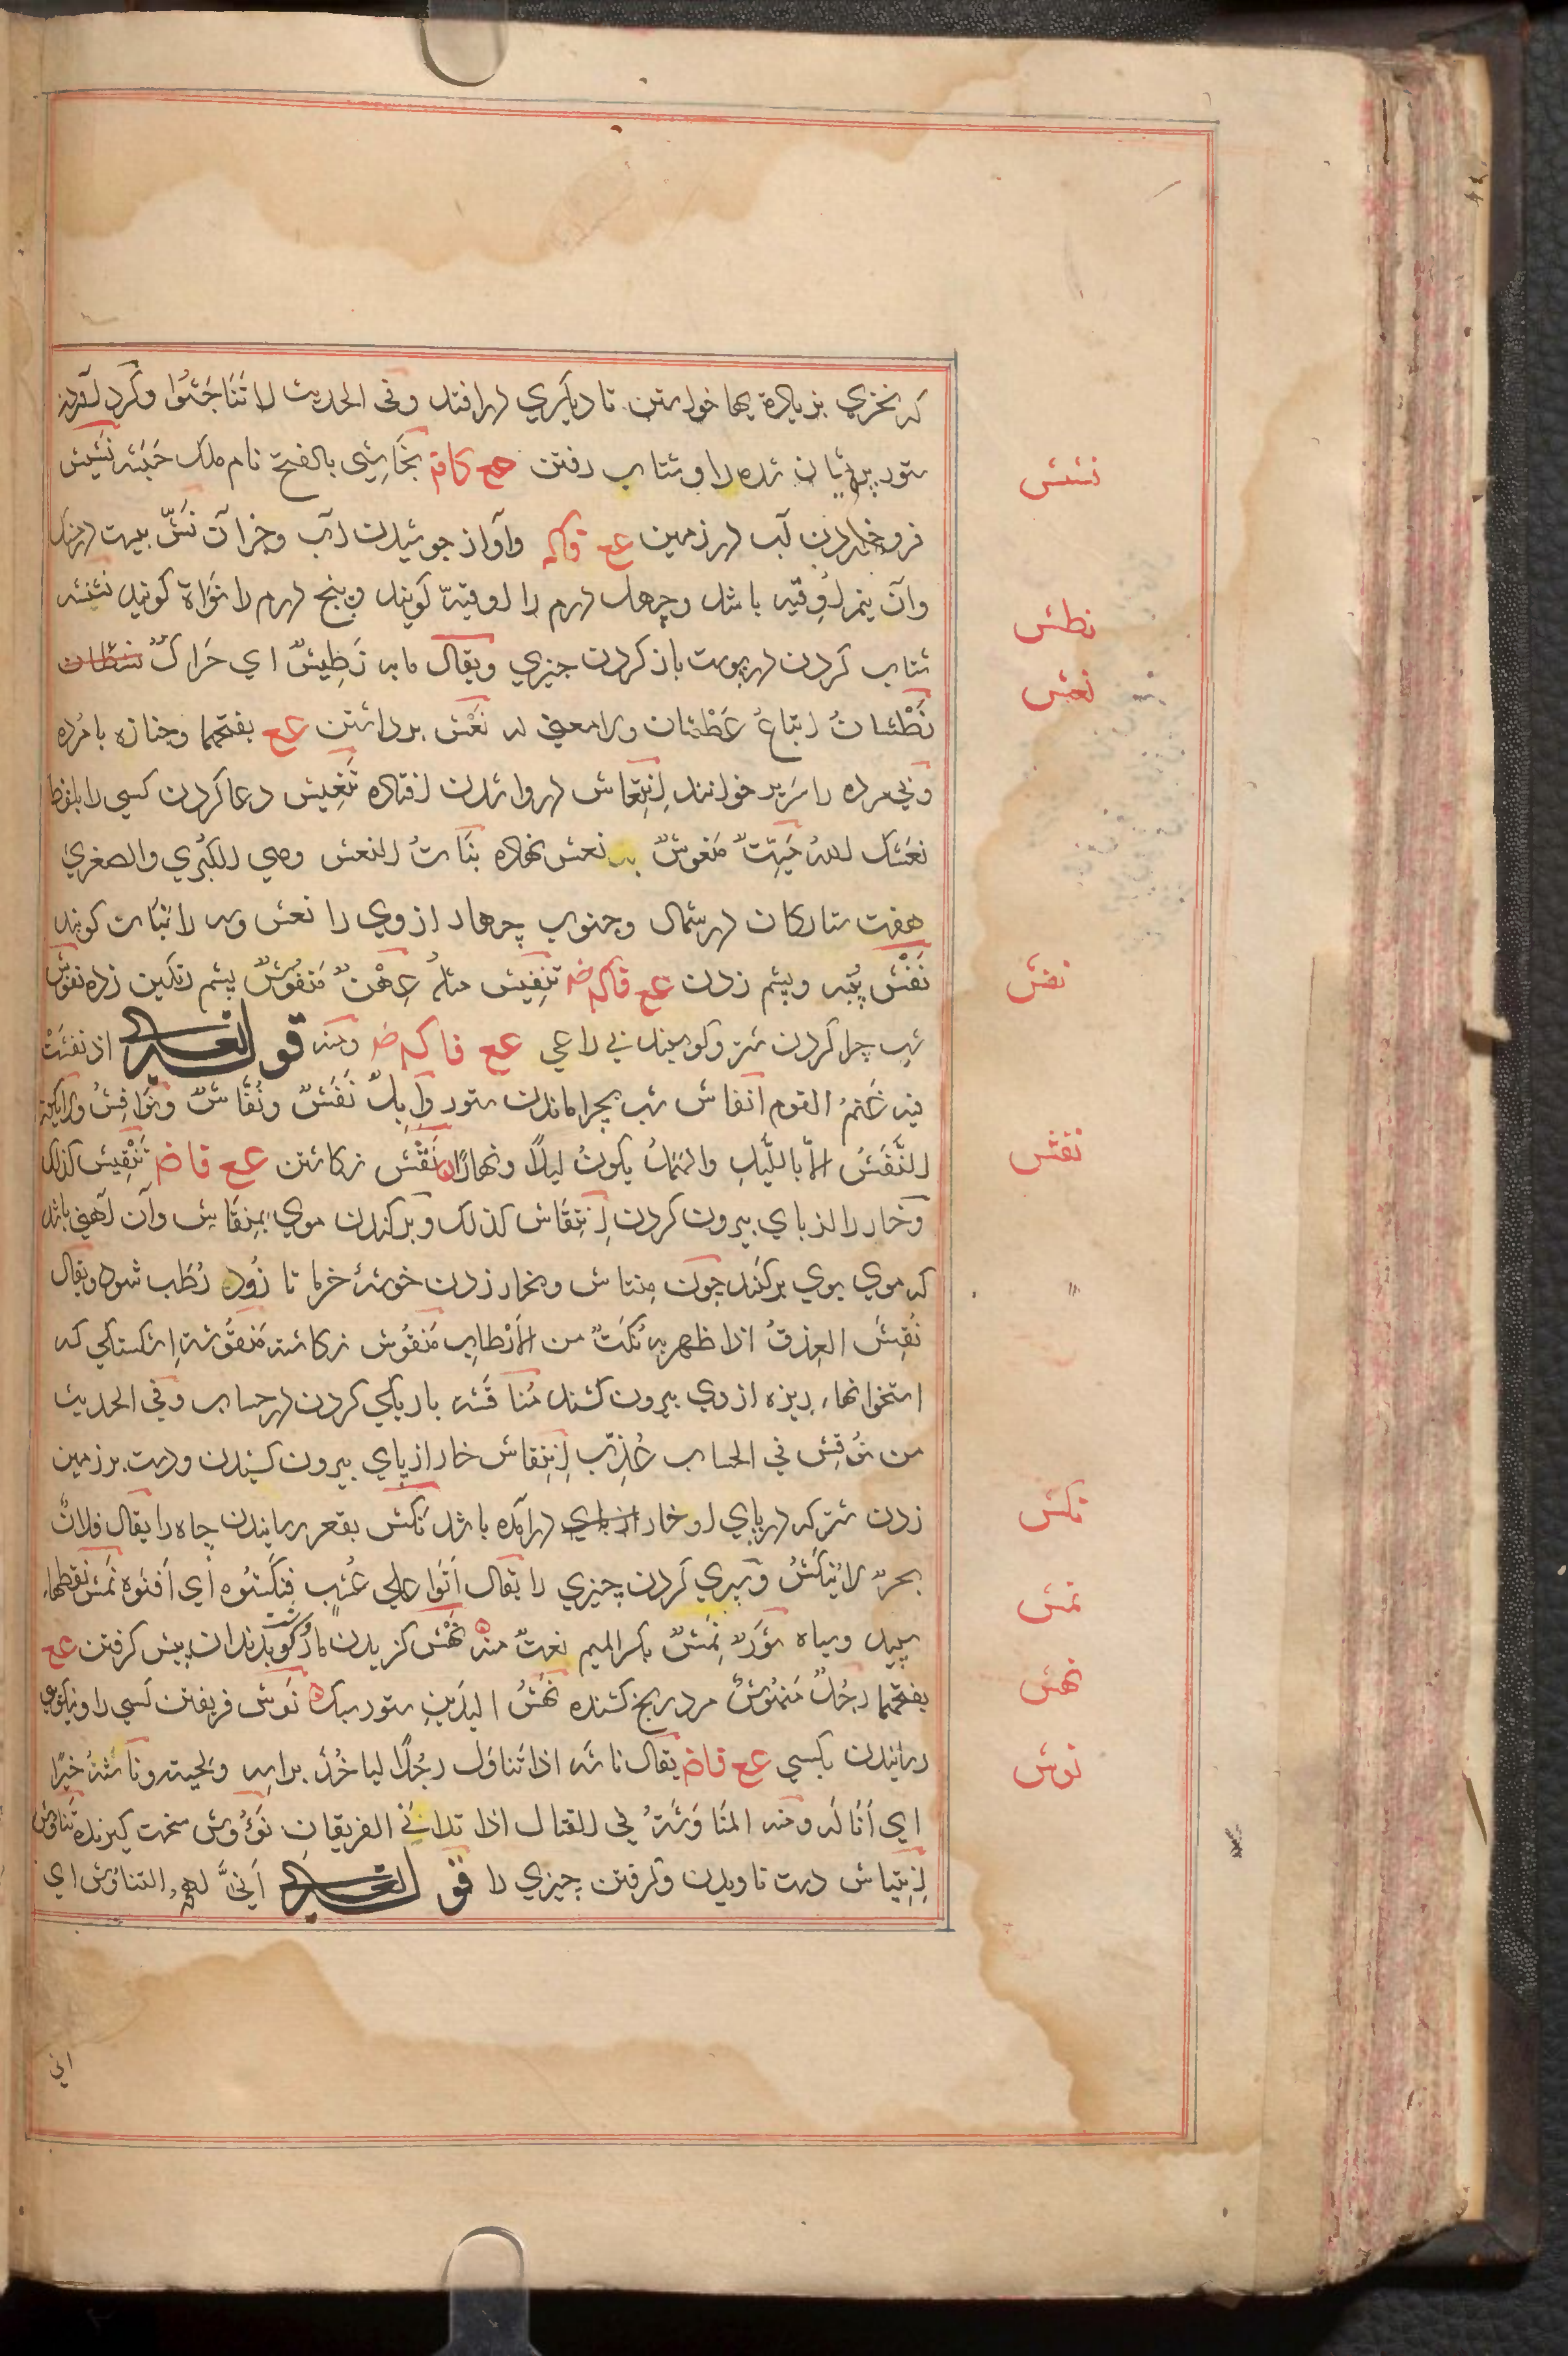 که نخري بزیادة بها خواستن تا دیگري درافتد وفی الحدیث لا تَنَاجَشُوا وگرد آوردن
ستور پریشان شده را وشتاب رفتن عع کافه نجَاشِي بالفتح نام ملک حَبَشَه نَشِیش
فرو خوردن آب در زمین عع فاکه وآواز جوشیدن آب وجزآن نَشّ بیست درهم
وآن نیم اُوقیّه باشد وچهل درهم را اوقیّه گویند وپنج درهم را نَوَاة گویند نَشْنَشَه
شتاب کردن در پوست باز کردن چیزي ویقال ما به نَطِیشٌ اي حَرَاکٌ
نَطْشَانُ اِتباعُ عَطْشان ولا معني له نَعْش برداشتن عع بفتحهما وجنازه با مُرده
وبي مرده را سَرِیر خوانند اِنْتِعَاش در وا شدن افتاده تَنْعِیش دعا کردن کسي را بلفظ
نَعَشَک اللهُ مَیِّتٌ مَنعوشٌ بر نعش نهاده بَنَاتُ النعش وهي الکُبْرَي والصغریٰ
هفت ستارگان در شمال وجنوب چهار از وي را نعش وسه را بَنَات گویند
نَفْش پُنْبه وپشم زدن عع فاکه ضه تنفِیش مثلهُ عِهْنٌ مَنفُوشٌ پشم رنگین زده نفوش
شب چرا کردن شتر وگوسپند بي راعي عع فاکه ضه ومنه قو لتعالی اذ نَفَشَتْ
فیه غَنَمُ القوم اَنفاش شب بچرا ماندن ستور وَاِبِلٌ نَفَشٌ ونُفَّاشٌ ونَوَافِشُ ولا یکون
النَّفَشُ اِلّا باللَّیلِ والهَمَلُ یکونُ لیلًا ونهارًا نَقْش نگاشتن عع فاضه تَنْقِیش کذلک
وخار را از پاي بیرون کردن اِنْتِقَاش کذلک وبرکندن موي بمِنقَاش وآن آهني باشد
که موي بوي برکنند چون مِنتاش وبخار زدن خوشهٔ خرما تا زُود رُطَب شود ویقال
نُقِشَ العِذقُ اذا ظهر به نُکَتٌ من الاَرْطابِ مَنقُوش نگاشته مَنقُوشَة شکستگي که
استخوانهاء ریزه از وي بیرون کشند مُنَاقَشَه باریکي کردن در حساب وفي الحدیث
من نُوقِشَ في الحساب عُذِّبَ اِنْتِقاش خار از پاي بیرون کشیدن ودست بر زمین
زدن شتر که در پاي او خار درآمده باشد نَکْش بقعر رسانیدن چاه را یقال فلانٌ
بحرٌ لا یُنْکَشُ وسپري کردن چیزي را یقال اَتَوا علي عُشْبٍ فنَکَشُوه اي اَفنَوه نَمَش نقطهاء
سپید وسیاه ثَورٌ نَمِشٌ بکسر المیم نعتٌ منه نَهْش گزیدن مار وگوشت بدندان پیش گرفتن عع
بفتحهما رجُلٌ مَنهُوشٌ مرد رنج کشنده نَهِشُ الیَدَینِ ستور سبک نَوش فریفتن کسي را ونیکوئي
رسانیدن بکسي عع فاضه یقال ناشَه اذا تَناوَل رجُلًا لیاخُذَ براسِه ولحیته ونَاشَهُ خیرًا
اي اَنَالَه ومنه المُنَاوَشَةُ في القتال اذا تدانَي الفریقان نَؤُوش سخت گیرنده تَنَاوُش
اِنْتِیاش دست تاویدن وگرفتن چیزي را قو لتعالی اَنّيٰ لَهُم التناوُش اي
اني
نشش
نطش
نعش
نفش
نقش
نکش
نمش
نهش
نوش